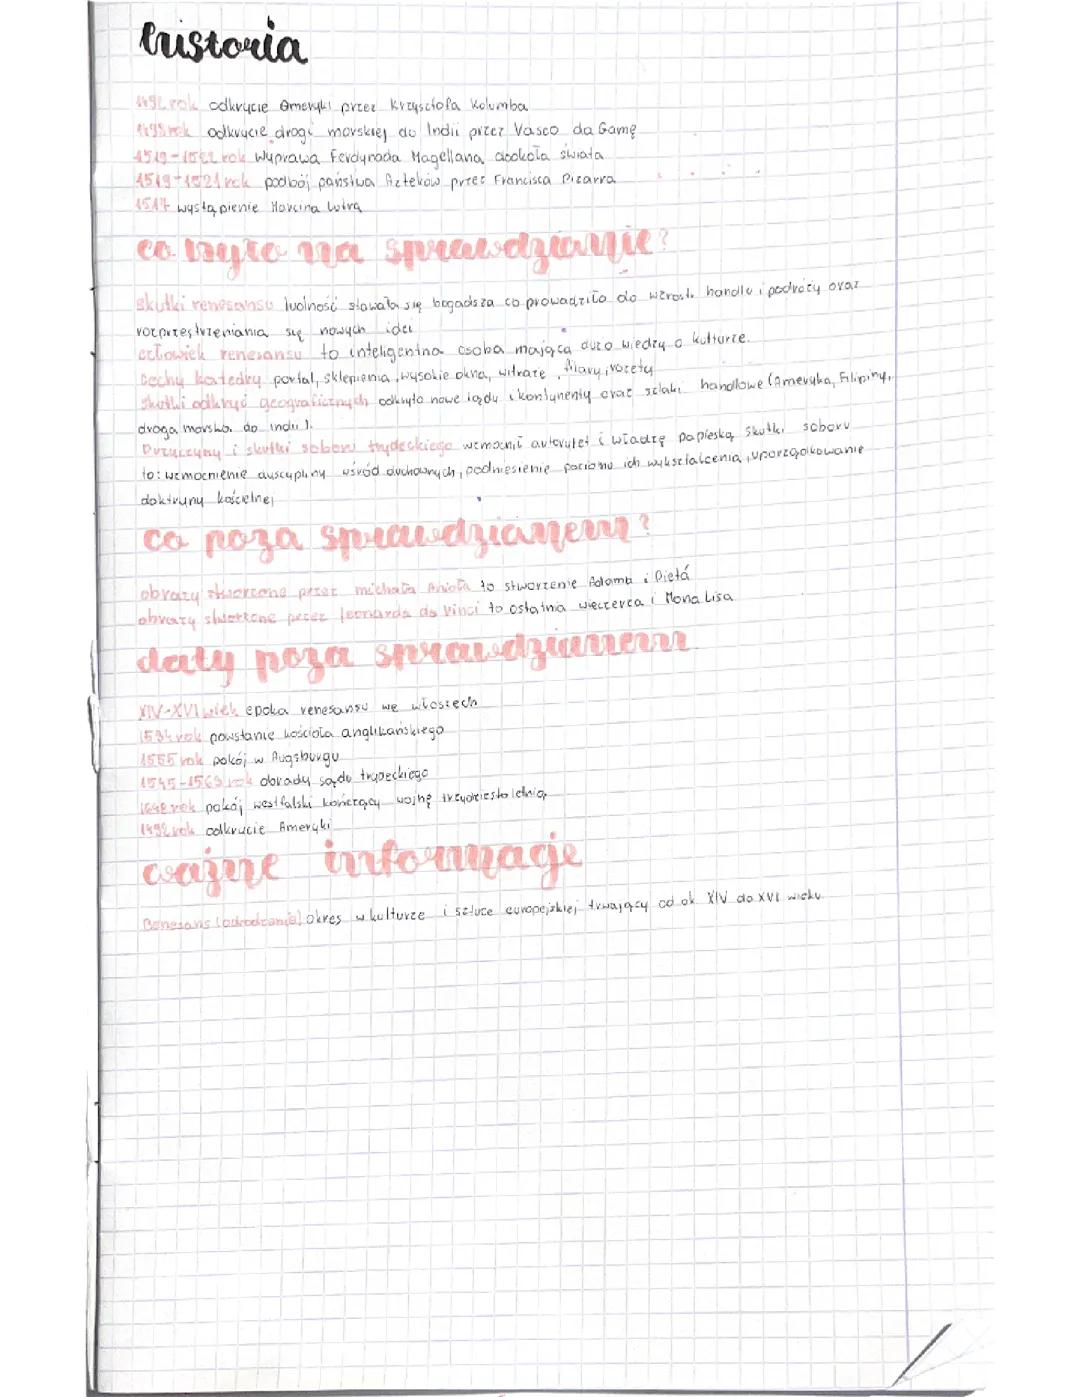 historia
1492 rok odkrycie Ameryki przez Krzysztofa Kolumba
1498 rok odkrycie drogi morskiej do Indii przez Vasco da Gamę
1519-1522 rok wyprawa Ferdynada Magellana dookoła świata
1519-1521 rok podbój państwa Azteków przez Francisca Pizarra
1517 wystąpienie Marcina Lutra
co było na sprawdzianie?
skutki renesansu ludność stawała się bogadsza co prowadziło do wzrostu handlu i podróży oraz
rozprzestrzeniania się nowych idei
człowiek renesansu to inteligentna osoba mająca dużo wiedzy o kulturze.
Cechy katedry portal, sklepienia, wysokie okna, witraże, filary, rozety
skutki odkryć geograficznych odkryto nowe lądy i kontynenty oraz szlaki handlowe (Ameryka, Filipiny,
droga morska do indii).
Przyczyny i skutki soboru trydeckiego wzmocnił autorytet i władzę papieską skutki soboru
to: wzmocnienie dyscypliny wśród duchownych, podniesienie poziomu ich wykształcenia, uporządkowanie
doktryny kościelnej
co poza sprawdzianem?
obrazy stworzone przez michała Anioła to stworzenie Adama i Pietá
obrazy stworzone przez leonarda da Vinci to ostatnia wieczerza i Mona Lisa
daty poza sprawdzianem
XIV-XVI wiek epoka renesansu we włoszech
1534 rok powstanie kościoła anglikańskiego
1555 rok pokój w Augsburgu
1545-1563 rok obrady sądu trydeckiego
1648 rok pokój westfalski kończący wojnę trzydziestoletnią
1492 rok odkrycie Ameryki
ważne informacje
Renesans (odrodzenie) okres w kulturze i sztuce europejskiej trwający od ok. XIV do XVI wieku